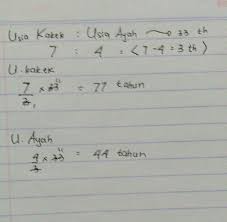 Usia Kakek : Usia Ayah → 33 th
7 : 4 = (7-4 = 3 th)
U. kakek
7/3 × 33 11 = 77 tahun
1
U. Ayah
4/3 × 33 11 = 44 tahun